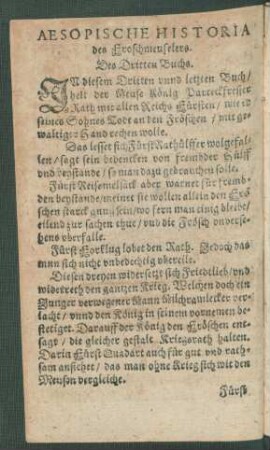 AESOPISCHE HISTORIA
des Froschmeuselers.
Des Dritten Buchs.
IN diesem Dritten vnnd letzten Buch/
helt der Meuse König Parteckfresser
Rath mit allen Reichs Fürsten/ wie er
seines Sohnes Todt an den Fröschen/ mit ge-
waltiger Hand rechen wolle.
Das lesset sich Fürst Rathülffer wolgefal-
len/ sagt sein bedencken von frembder Hülff
vnd beystande/ so man dazu gebrauchen solle.
Fürst Reisemelsack aber warnet für fremb-
den beystande/ meinet sie wollen allein den Frö-
schen starck gnug sein/ wo fern man einig bleibe/
eilend zur sachen thue/ vnd die Frösch vnverse-
hens vberfalle.
Fürst Corklug lobet den Rath. Jedoch das
man sich nicht vnbedechtig vbereile.
Diesen dreyen widersetzt sich Friedtlieb/ vnd
widerreth den gantzen Krieg. Welchen doch ein
Junger verwegener Mann Milchramlecker ver-
lacht/ vnnd den König in seinem vornemen be-
stetiget. Darauff der König den Fröschen ent-
sagt/ die gleicher gestalt Kriegsrath halten.
Darin Fürst Quadart auch für gut vnd rath-
sam ansihet/ das man ohne Krieg sich mit den
Meusen vergleiche.
Fürst